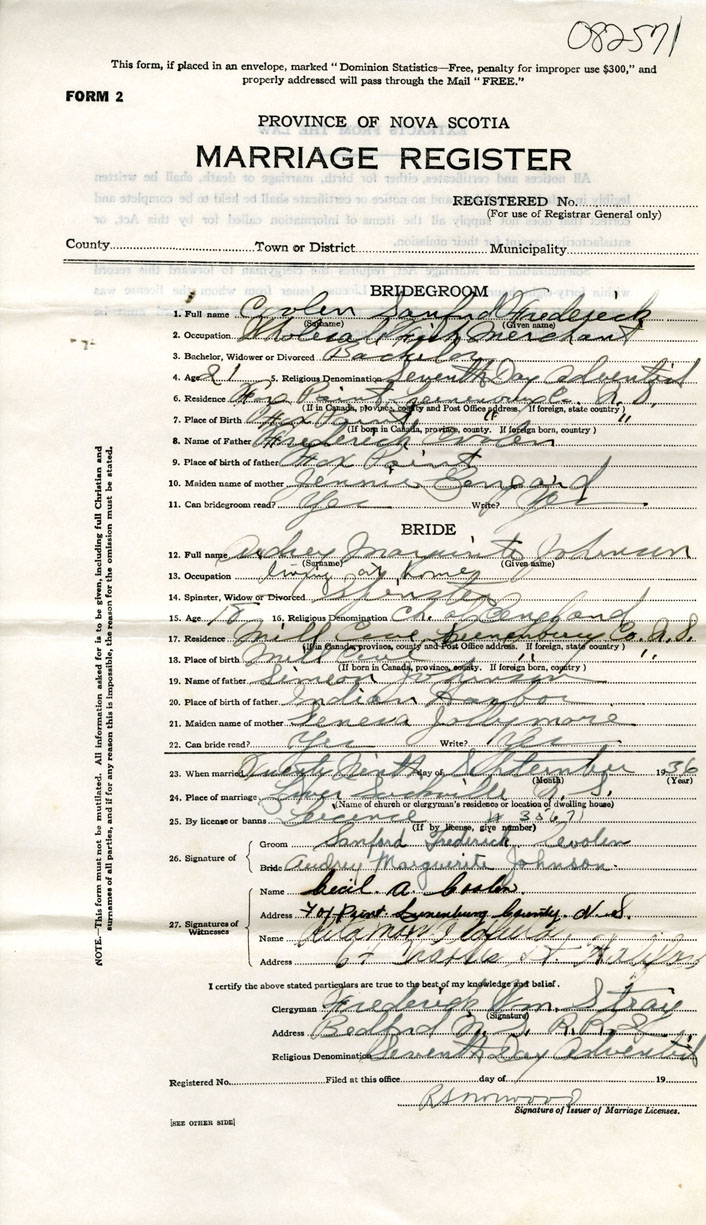 082571
This form, if placed in an envelope, marked "Dominion Statistics—Free, penalty for improper use $300," and
properly addressed will pass through the Mail "FREE."
FORM 2
PROVINCE OF NOVA SCOTIA
MARRIAGE REGISTER
REGISTERED No.
(For use of Registrar General only)
County Town or District Municipality
BRIDEGROOM
1. Full name Coolen Sanford Frederick
(Surname) (Given name)
2. Occupation Wholesale Fish Merchant
3. Bachelor, Widower or Divorced Bachelor
4. Age 21 5. Religious Denomination Seventh Day Adventist
6. Residence Fox Point Lunenburg Co. N.S.
(If in Canada, province, county and Post Office address. If foreign, state country)
7. Place of Birth Fox Point " "
(If born in Canada, province, county. If foreign born, country)
8. Name of Father Frederick Coolen
9. Place of birth of father Fox Point
10. Maiden name of mother Jennie
11. Can bridegroom read? Yes Write? Yes
BRIDE
12. Full name Audrey Marguerite Johnson
(Surname) (Given name)
13. Occupation living at home
14. Spinster, Widow or Divorced Spinster
15. Age 18 16. Religious Denomination Ch. of England
17. Residence Mill Cove Lunenburg Co. N.S.
(If in Canada, province, county and Post Office address. If foreign, state country)
18. Place of birth Mill Cove " "
(If born in Canada, province, county. If foreign born, country)
19. Name of father Simeon Johnson
20. Place of birth of father Indian Harbor
21. Maiden name of mother Seneva Jollymore
22. Can bride read? Yes Write? Yes
23. When married Twenty Ninth day of September 1936
(Month) (Year)
24. Place of marriage Lower Sackville N.S.
(Name of church or clergyman's residence or location of dwelling house)
25. By license or banns License # 35671
(If by license, give number)
26. Signature of
Groom Sanford Frederick Coolen
Bride Audrey Marguerite Johnson.
27. Signatures of Witnesses
Name Cecil A. Coolen
Address Fox Point Lunenburg County N.S.
Name
Address St Halifax
I certify the above stated particulars are true to the best of my knowledge and belief.
Clergyman Frederick Wm. Stray
(Signature)
Address Bedford N.S. R.R.
Religious Denomination Seventh Day Adventist
Registered No. Filed at this office day of 19
Signature of Issuer of Marriage Licenses.
[SEE OTHER SIDE]
NOTE.—This form must not be mutilated. All information asked for is to be given, including full Christian and
surnames of all parties, and if for any reason this is impossible, the reason for the omission must be stated.